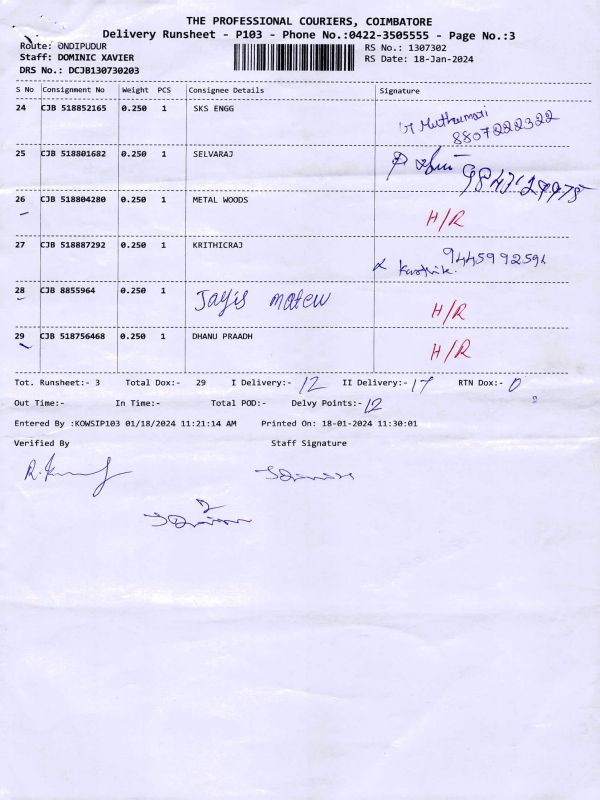 THE PROFESSIONAL COURIERS, COIMBATORE
Delivery Runsheet - P103 - Phone No.:0422-3505555 - Page No.:3
Route: ONDIPUDUR
RS No.: 1307302
Staff: DOMINIC XAVIER
RS Date: 18-Jan-2024
DRS No.: DCJB130730203
S No Consignment No Weight PCS Consignee Details Signature
24 CJB 518852165 0.250 1 SKS ENGG
8807222322
25 CJB 518801682 0.250 1 SELVARAJ
26 CJB 518804280 0.250 1 METAL WOODS H/R
27 CJB 518887292 0.250 1 KRITHICRAJ
Karthik.
28 CJB 8855964 0.250 1 Jayis matew H/R
29 CJB 518756468 0.250 1 DHANU PRAADH H/R
Tot. Runsheet:- 3 Total Dox:- 29 I Delivery:- 12 II Delivery:- 17 RTN Dox:- 0
Out Time:- In Time:- Total POD:- Delvy Points:- 12
Entered By :KOWSIP103 01/18/2024 11:21:14 AM Printed On: 18-01-2024 11:30:01
Verified By Staff Signature